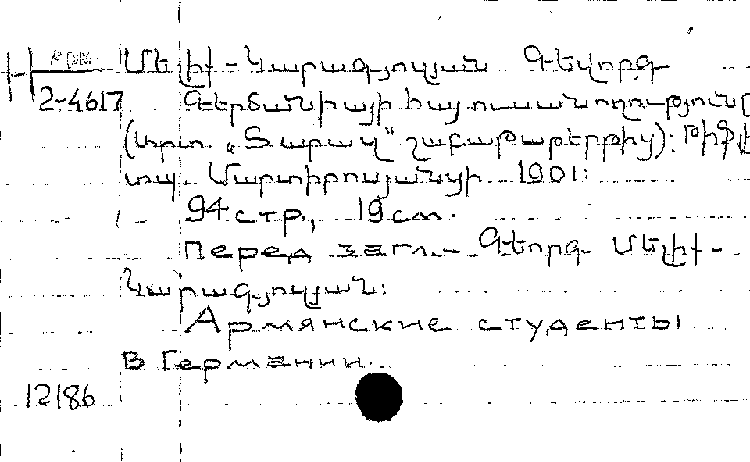 Մելիք-Կարագյոզյան Գևորգ
2-4617 Գերմանիայի հայ ուսանողությունը
(Արտ. „Տարազ“ շաբաթաթերթից): Թիֆլ
տպ. Մարտիրոսյանցի 1901:
94 стр., 19 см.
Перед загл.- Գևորգ Մելիք-
Կարագյոզյան:
Армянские студенты
в Германии.
12186